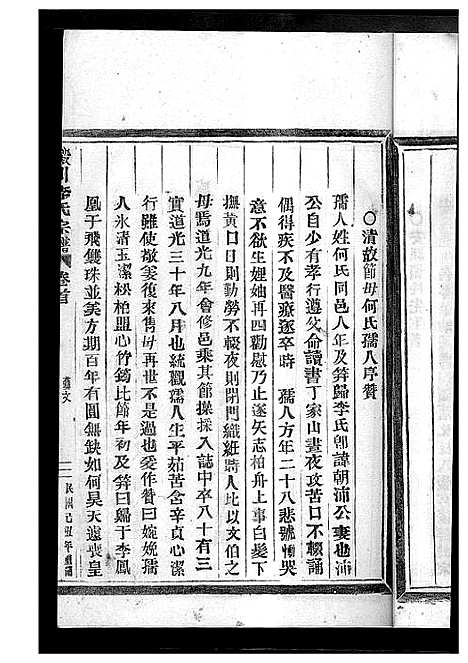 ○清故節母何氏孺人序贊
孺人姓何氏同邑人年及笄歸李氏卽諱朝浦公妻也浦
公自少有孝行遵父命讀書丁家山晝夜攻苦口不輟誦
偶得疾不及醫療遂卒時　孺人方年二十八悲號慟哭
意不欲生娌妯再四勸慰乃止遂矢志柏舟上事白髮下
撫黃口日則勤勞不輟夜則閉門織紝將人比以文伯之
母焉道光九年會修邑乘其節操採入誌中卒八十有三
實道光三十年八月也統觀孺人生平茹苦含辛貞心潔
行雖使敬姜復來雋母再世不是過也爰作贊曰婉娩孺
人氷清玉潔松柏盟心竹筠比節年初及笄曰歸于李鳳
凰于飛雙珠並美方期百年有圓無缺如何昊天遽喪皇
川李氏宗譜
卷首
文
民國己丑年重